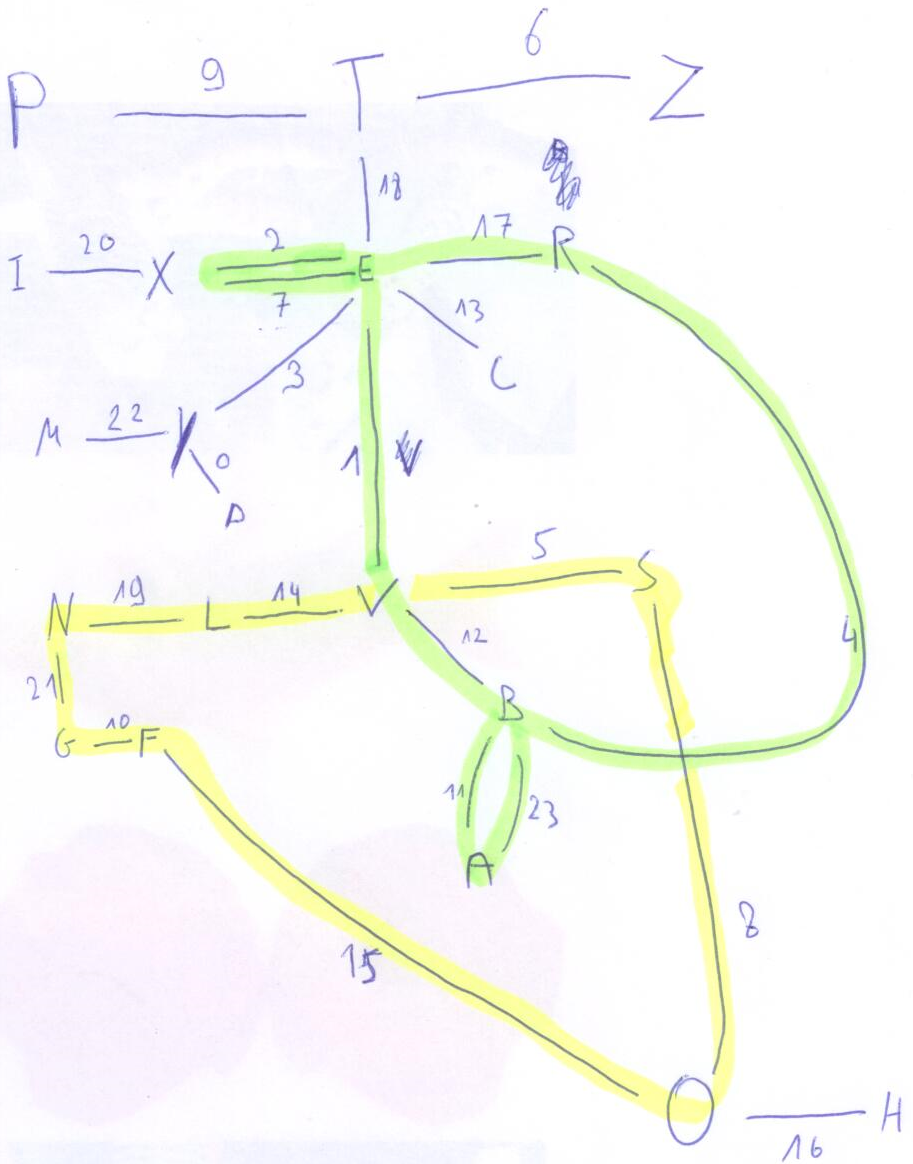 P 9 T 6 Z
18
I 20 X 2 E 17 R
7
3 13
C
M 22 K
0
1
D
5
N 19 L 14 V S
12
4
21
B
G 10 F
11 23
A
8
15
O H
16